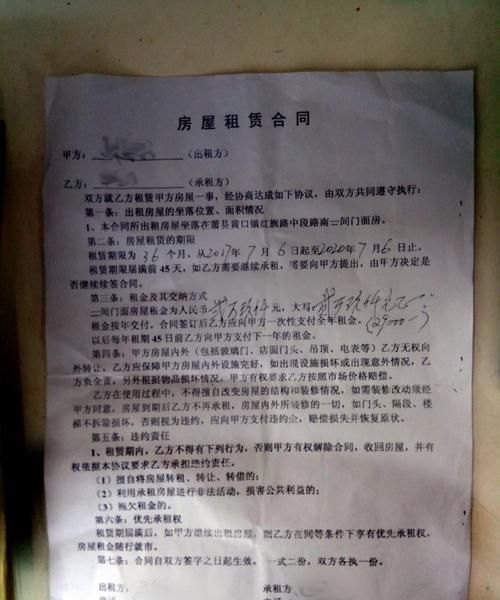 房屋租赁合同
甲方：（出租方）
乙方：（承租方）
双方就乙方租赁甲方房屋一事，经协商达成如下协议，由双方共同遵守执行：
第一条：出租房屋的坐落位置、面积情况
1、本合同所出租房屋坐落在萧县黄口镇红旗路中段路南二间门面房。
第二条：房屋租赁的期限
租赁期限为36个月。从2017年7月6日起至2020年7月6日止。
租赁期限届满前45天，如乙方需要继续承租，需要向甲方提出，由甲方决定是
否继续续签合同。
第三条：租金及其交纳方式
二间门面房屋租金为人民币贰万玖仟元，大写贰万玖仟元
租金按年交付。合同签订后乙方应向甲方一次性支付全年租金。29000
以后每年租期45日前乙方向甲方支付下一年的租金。
第四条：甲方房屋内外（包括玻璃门、店面门头、吊顶、电表等）乙方无权向
外转让，乙方应保障甲方房屋内外设施完好，如出现设施损坏或出现意外情况，乙
方负全责，另外根据物品损坏情况，甲方有权要求乙方按照市场价格赔偿。
乙方在使用过程中，不得擅自改变房屋的结构和装修情况，如需装修改动须经
甲方同意，房屋到期后乙方不再承租，房屋内外所装修的一切，如门头、隔段、楼
梯不拆除损坏，否则视为违约，应向甲方支付违约金，赔偿损失并恢复原状。
第五条：违约责任
1、租赁期内，乙方不得有下列行为，否则甲方有权解除合同，收回房屋，并有
权依据本协议要求乙方承担违约责任。
（1）擅自将房屋转租、转让、转借的；
（2）利用承租房屋进行非法活动，损害公共利益的；
（3）拖欠租金的。
第六条：优先承租权
租赁期届满后，如甲方继续出租房屋，则乙方在同等条件下享有优先承租权，
房屋租金随行就市。
第七条：合同自双方签字之日起生效。一式二份，双方各执一份。
出租方： 承租方